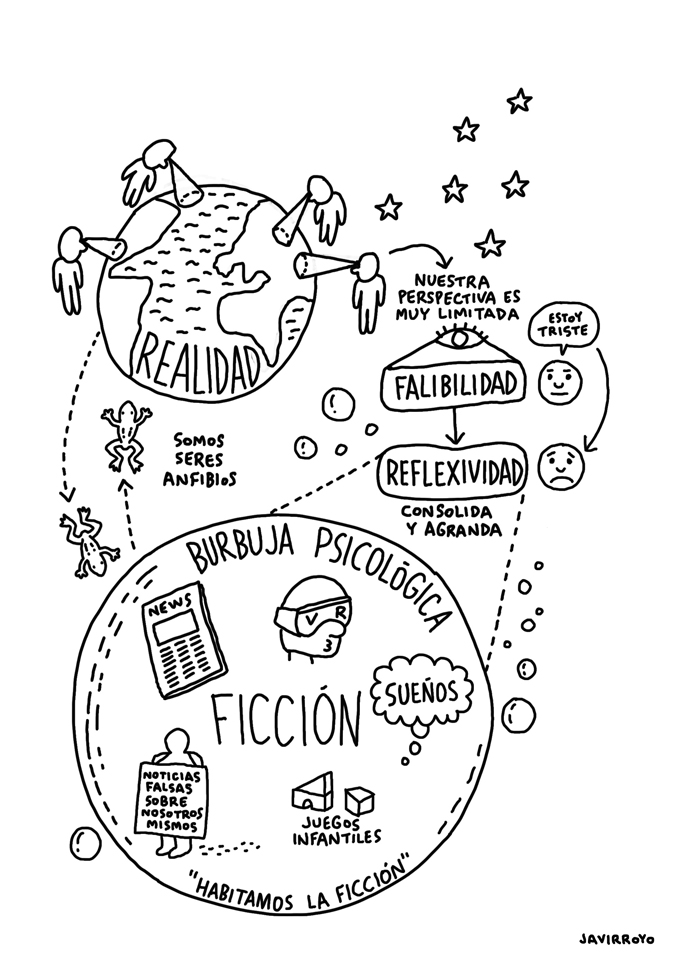 REALIDAD
NUESTRA
PERSPECTIVA ES
MUY LIMITADA
ESTOY
TRISTE
FALIBILIDAD
SOMOS
SERES
ANFIBIOS
REFLEXIVIDAD
CONSOLIDA
Y AGRANDA
BURBUJA PSICOLÓGICA
NEWS
VR
FICCIÓN
SUEÑOS
NOTICIAS
FALSAS
SOBRE
NOSOTROS
MISMOS
JUEGOS
INFANTILES
"HABITAMOS LA FICCIÓN"
JAVIRROYO